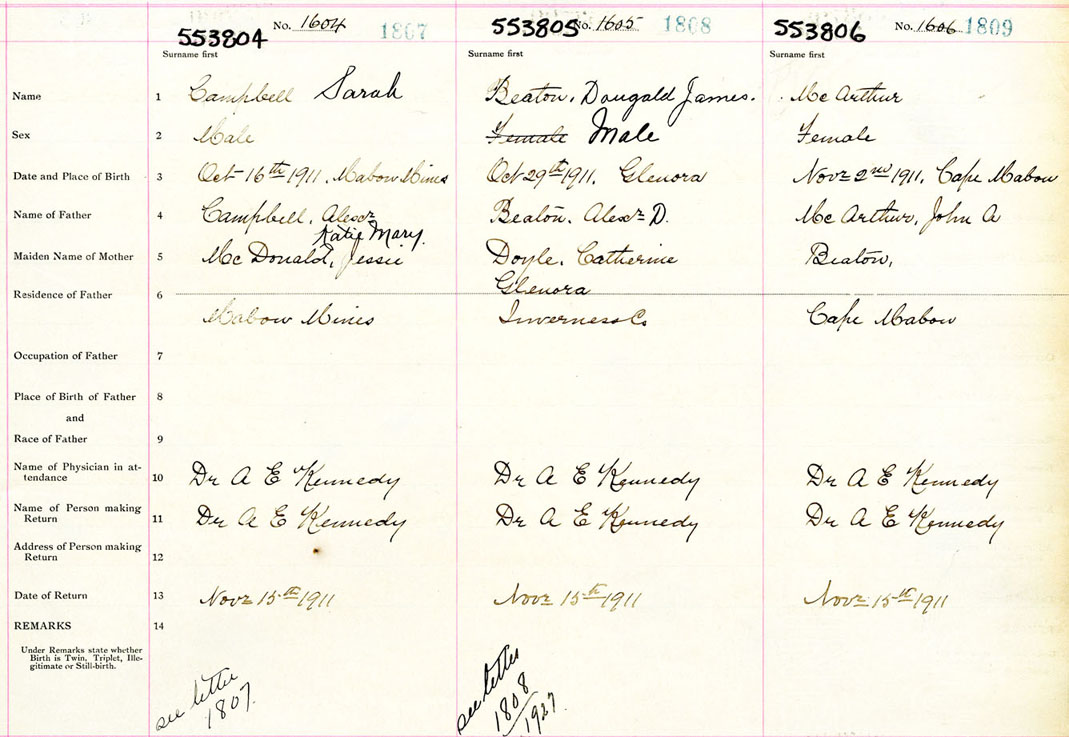 553804 No. 1604 1807 553805 No. 1605 1808 553806 No. 1606 1809
Surname first Surname first Surname first
Name 1 Campbell Sarah Beaton, Dougald James. Mc Arthur
Sex 2 Male Female Male Female
Date and Place of Birth 3 Oct 16th 1911, Mabow Mines Oct 29th 1911, Glenora Novr 2nd 1911, Cape Mabow
Name of Father 4 Campbell, Alexr Beaton, Alexr D. Mc Arthur, John A
Katie Mary.
Maiden Name of Mother 5 Mc Donald, Jessie Doyle, Catherine Beaton,
Glenora
Residence of Father 6
Mabow Mines Inverness Co Cape Mabow
Occupation of Father 7
Place of Birth of Father 8
and
Race of Father 9
Name of Physician in at-
tendance 10 Dr A E Kennedy Dr A E Kennedy Dr A E Kennedy
Name of Person making
Return 11 Dr A E Kennedy Dr A E Kennedy Dr A E Kennedy
Address of Person making
Return 12
Date of Return 13 Novr 15th 1911 Novr 15th 1911 Novr 15th 1911
REMARKS 14
Under Remarks state whether
Birth is Twin, Triplet, Ille-
gitimate or Still-birth.
see letter
1807.
see letter
1808
/1927.